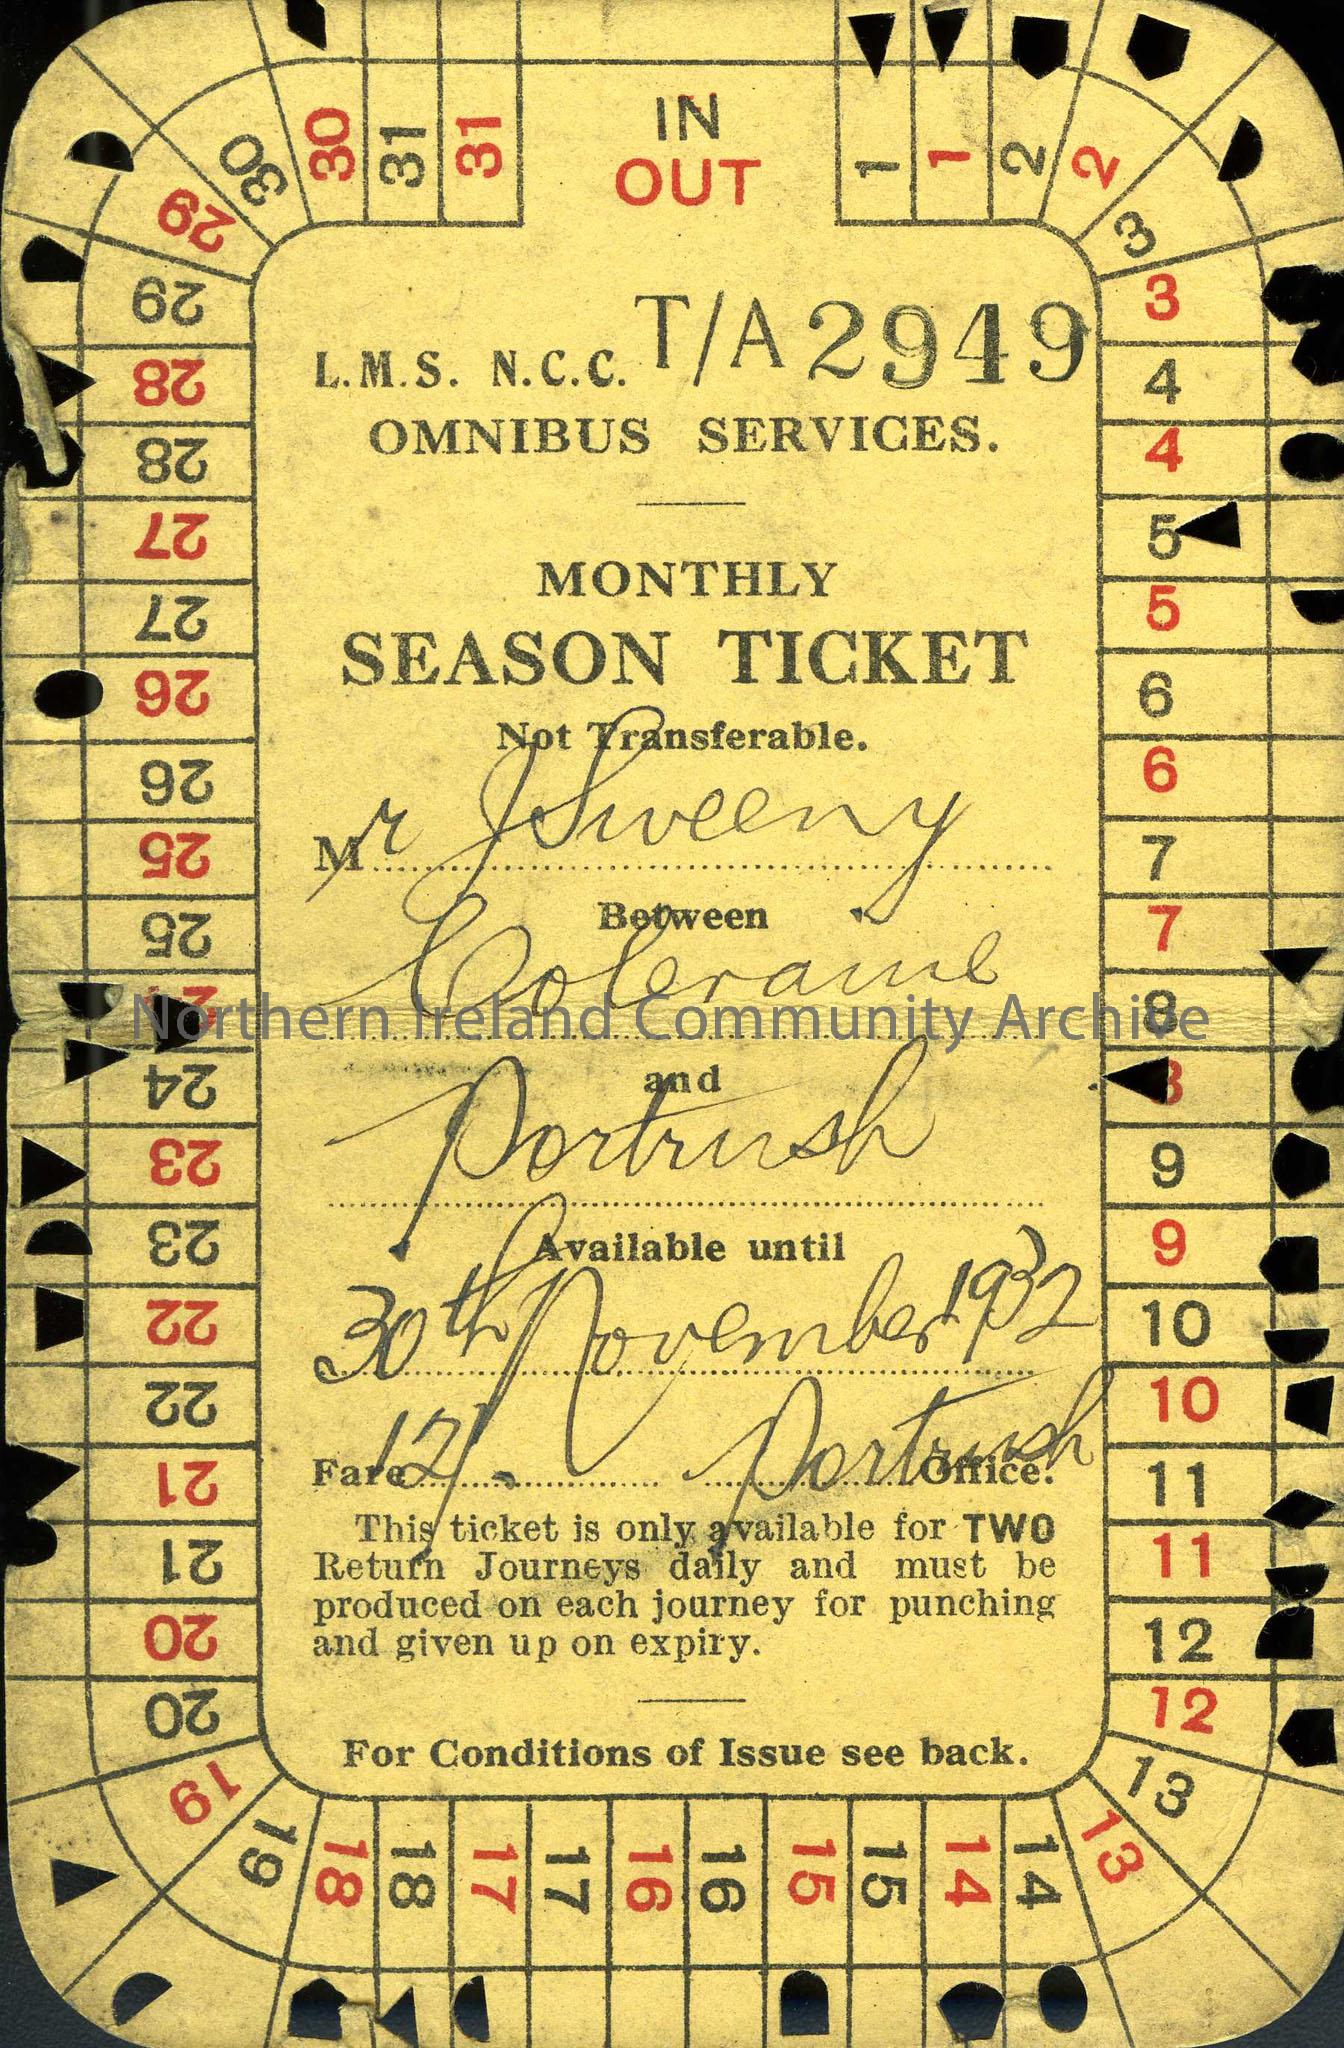 IN
OUT
L.M.S. N.C.C. T/A 2949
OMNIBUS SERVICES.
MONTHLY
SEASON TICKET
Not Transferable.
Mr J Sweeny
Between
Coleraine
and
Portrush
Available until
30th November 1932
Fare 12/- Portrush Office.
This ticket is only available for TWO
Return Journeys daily and must be
produced on each journey for punching
and given up on expiry.
For Conditions of Issue see back.
1 1 2 2 3
3
4
4
5
5
6
6
7
7
8
8
9
9
10
10
11
11
12
12
13
13
14
14
15
15
16
16
17
17
18
18
19
19
20
20
21
21
22
22
23
23
24
24
25
25
26
26
27
27
28
28
29
29
30
30
31
31
Northern Ireland Community Archive